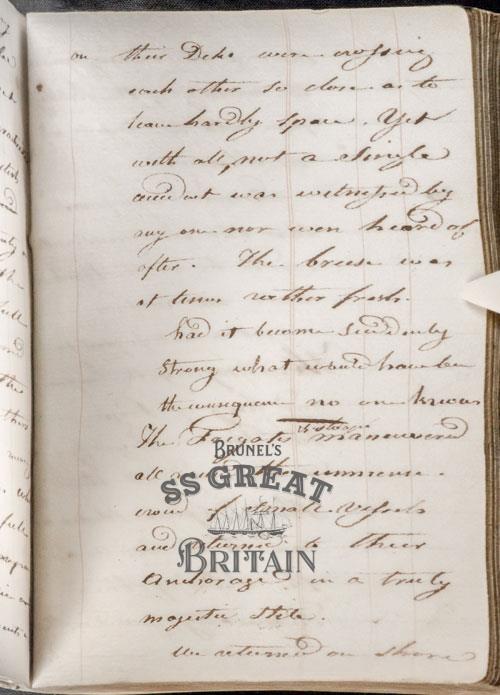 on their Decks were crossing
each other so close as to
leave hardly space. Yet
with all, not a single
accident was witnessed by
any one nor even heard of
after. The breese was
at times rather fresh.
had it become suddenly
strong what would have been
the consequence no one knows
The Frigate maneuvered
all the immense
crowd of small Vessels
and returned to their
Anchorage in a truly
majestic stile.
We returned on shore
BRUNEL'S
SS GREAT
BRITAIN